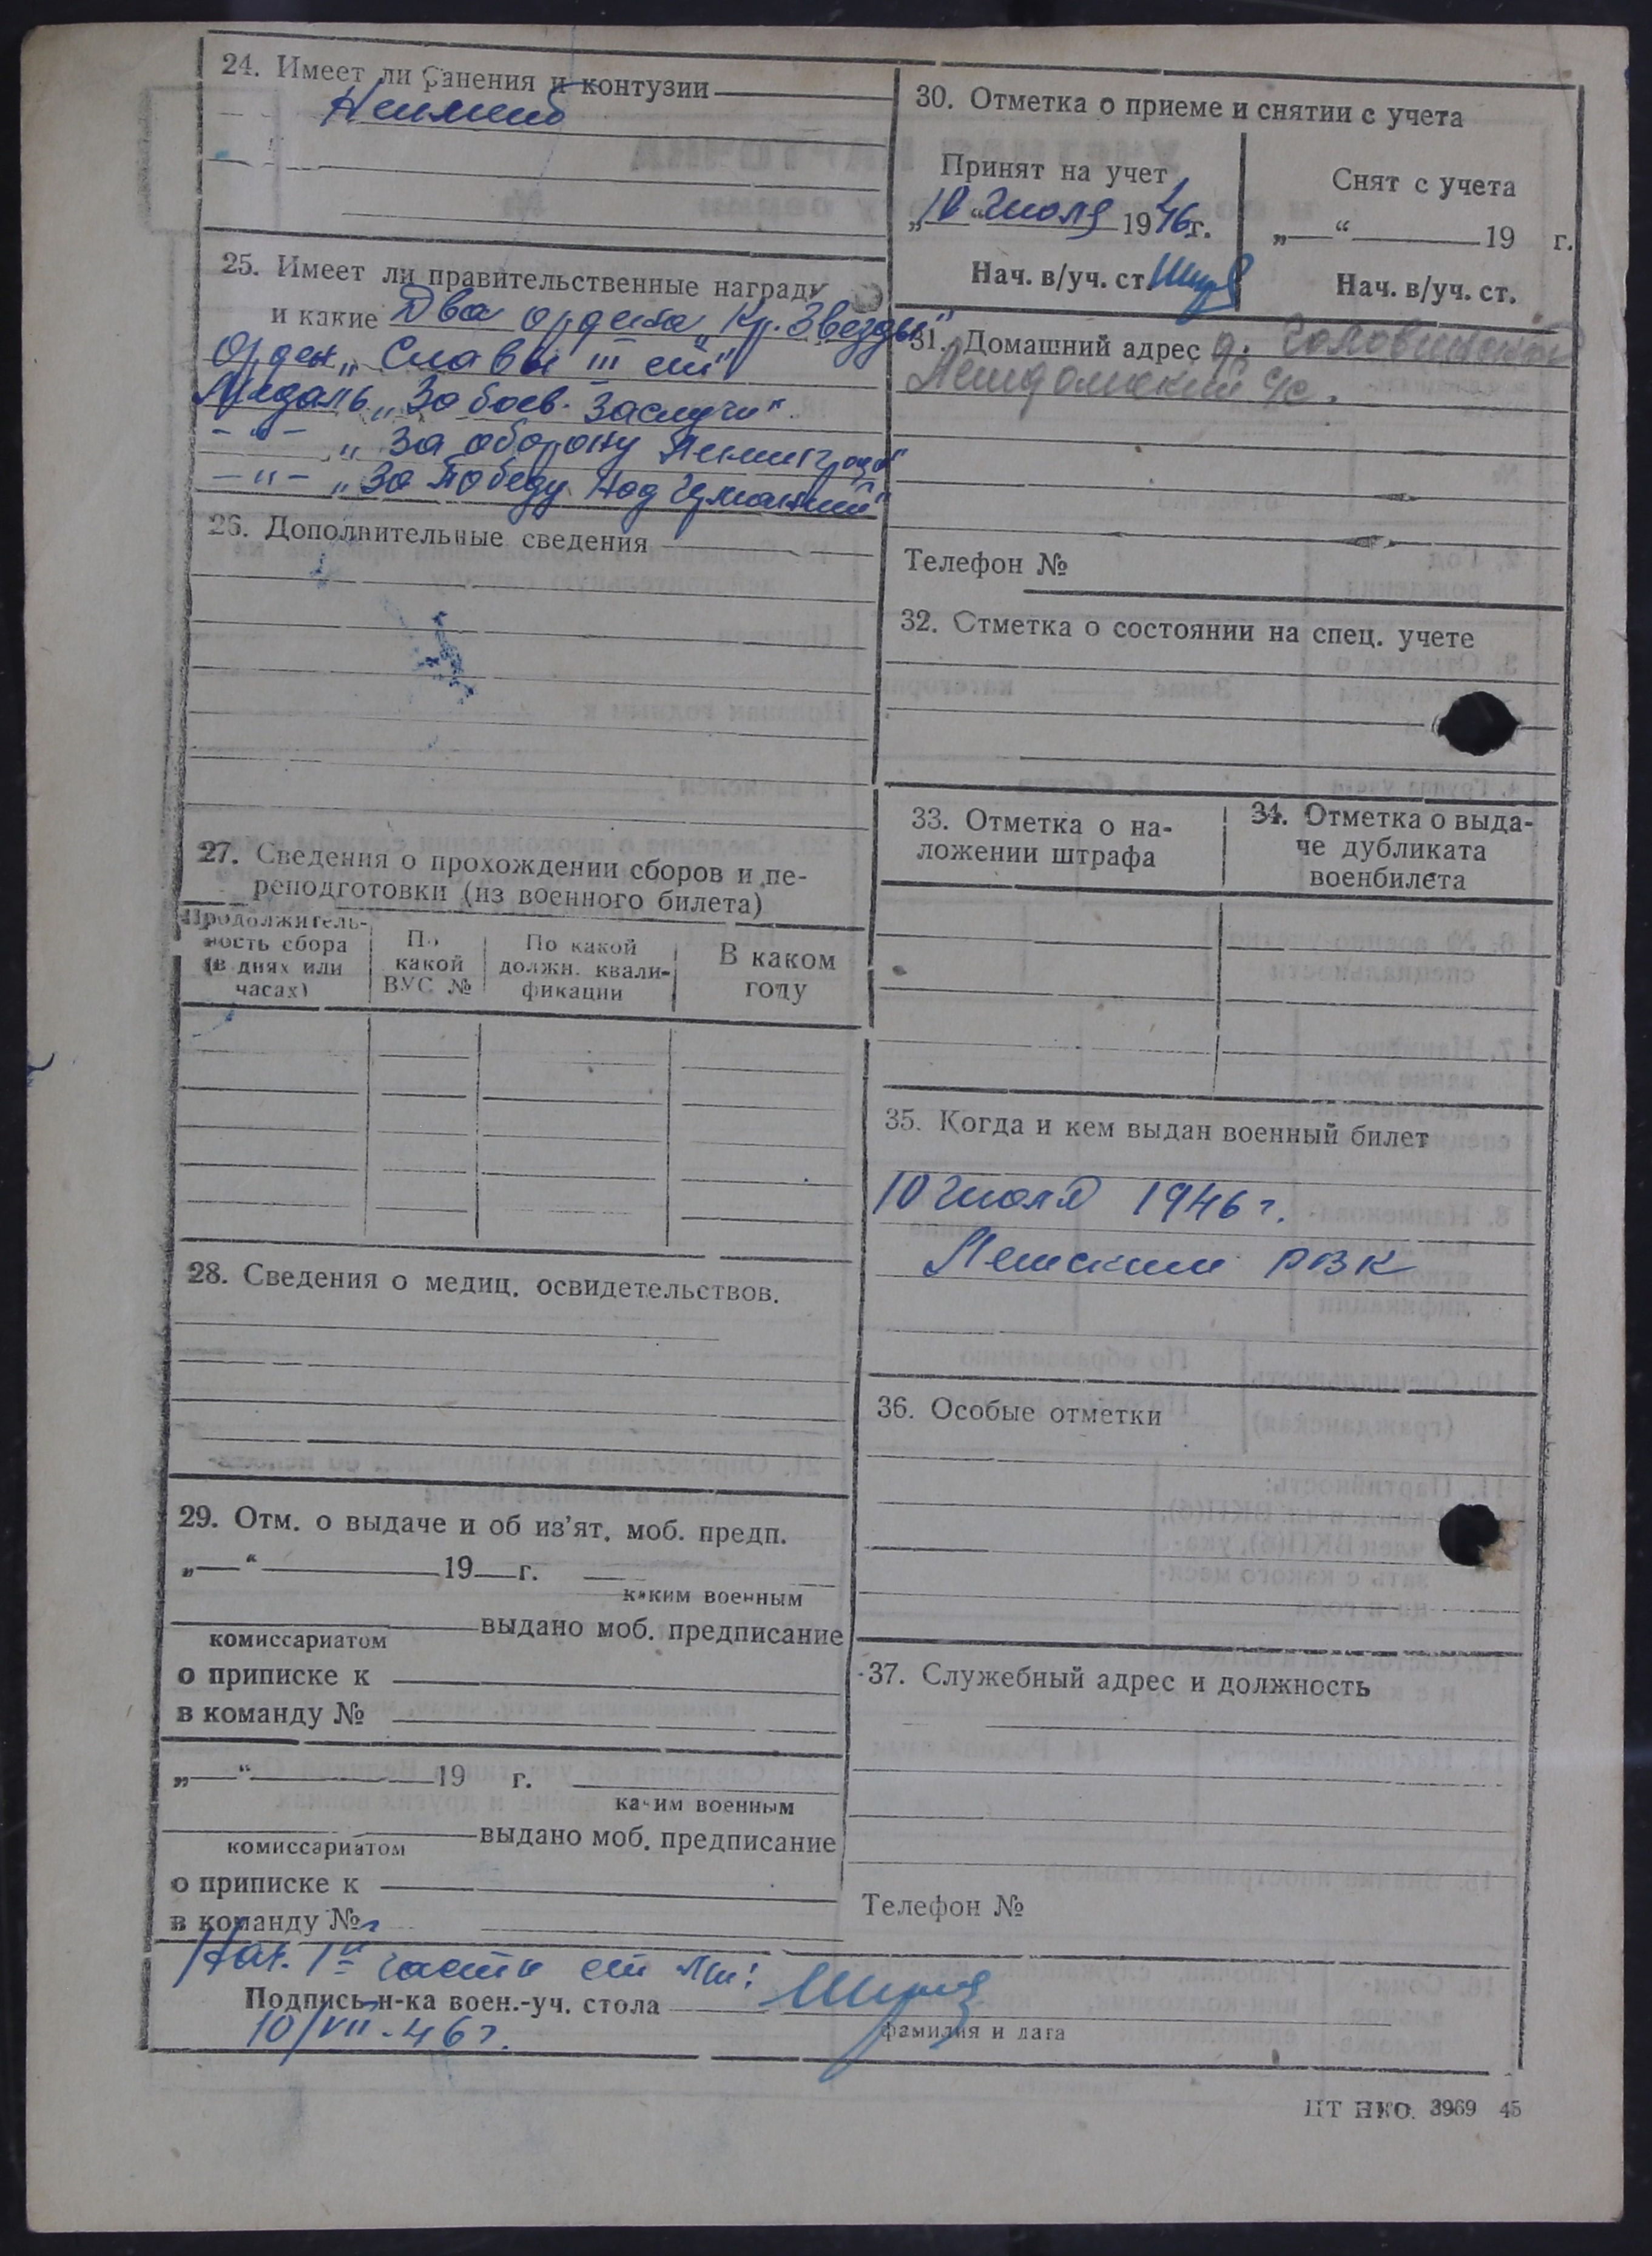 24. Имеет ли ранения и контузии
Неимеет
25. Имеет ли правительственные награды
и какие Два ордена „Кр. Звезды"
Орден „Славы III ст"
Медаль „За боев. заслуги".
—"— „За оборону Ленинграда"
—"— „За победу над Германией"
26. Дополнительные сведения
27. Сведения о прохождении сборов и пе-
реподготовки (из военного билета)
Продолжитель-
ность сбора
(в днях или
часах)
По
какой
ВУС №
По какой
должн. квали-
фикации
В каком
году
28. Сведения о медиц. освидетельствов.
29. Отм. о выдаче и об из'ят. моб. предп.
„—“ 19 г.
каким военным
выдано моб. предписание
комиссариатом
о приписке к
в команду №
„—“ 19 г.
каким военным
выдано моб. предписание
комиссариатом
о приписке к
в команду №
30. Отметка о приеме и снятии с учета
Принят на учет
„10“ Июля 1946г.
Нач. в/уч. ст.
Снят с учета
„—“ 19 г.
Нач. в/уч. ст.
31. Домашний адрес д.
с/с.
Телефон №
32. Отметка о состоянии на спец. учете
33. Отметка о на-
ложении штрафа
34. Отметка о выда-
че дубликата
военбилета
35. Когда и кем выдан военный билет
10 Июля 1946 г.
РВК
36. Особые отметки
37. Служебный адрес и должность
Телефон №
Нач. 1й части ст л-т:
Подпись н-ка воен.-уч. стола
10/VII-46г.
фамилия и дата
ЦТ НКО. 3969 45